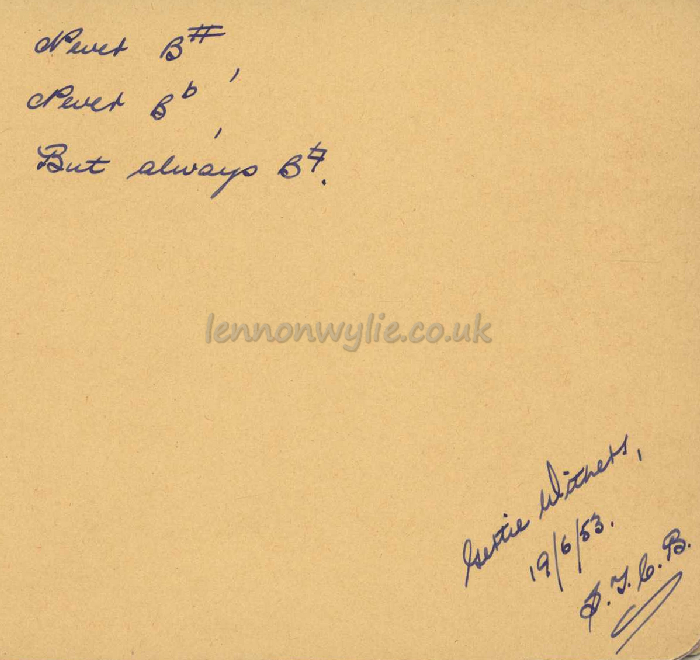 Never B♯,
Never B♭,
But always B♮.
lennonwylie.co.uk
Gertie Withers,
19/6/53.
S.T.C.B.